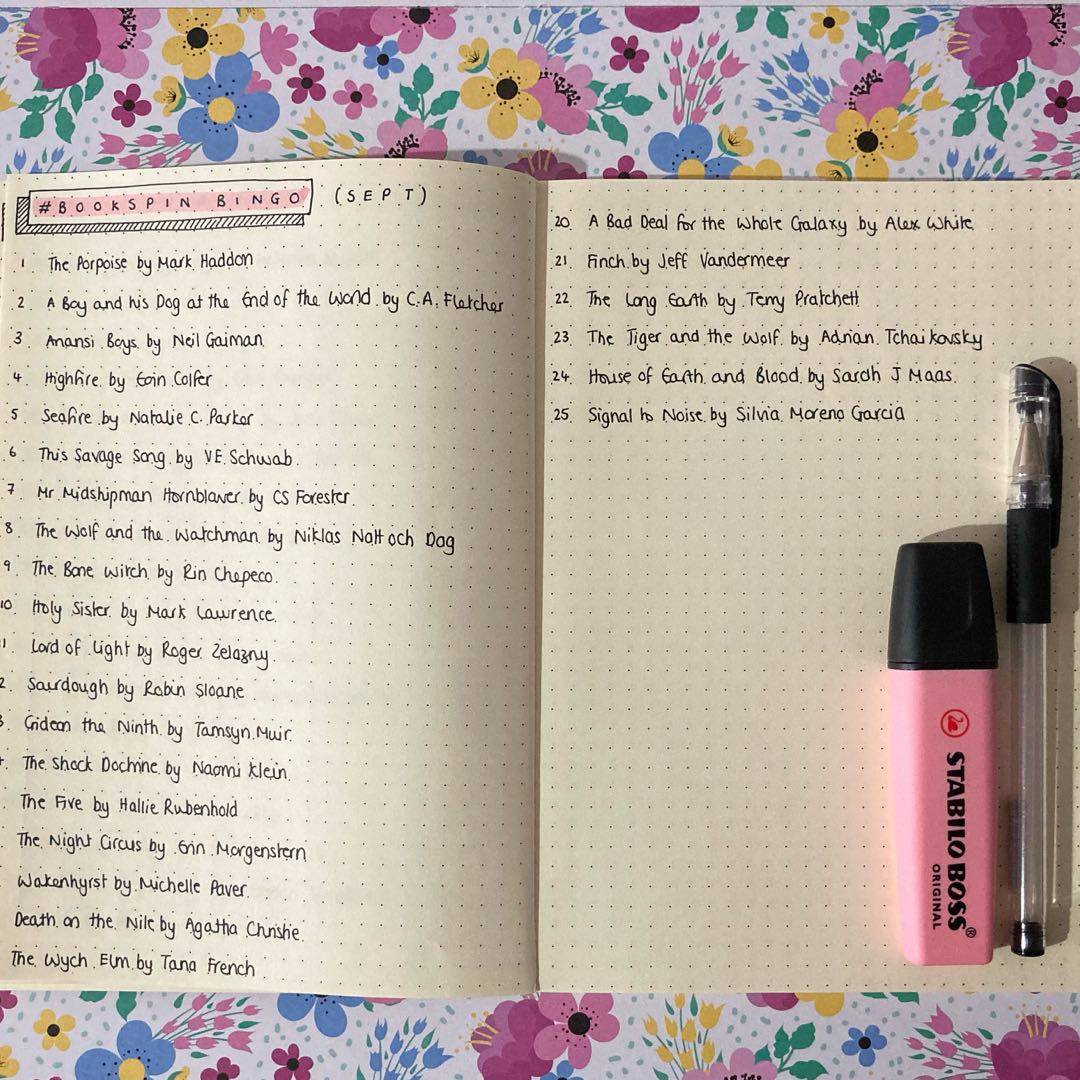 #BOOKSPIN BINGO (SEPT)
1. The Porpoise by Mark Haddon
2. A Boy and his Dog at the End of the World by C.A. Fletcher
3. Anansi Boys by Neil Gaiman
4. Highfire by Eoin Colfer
5. Seafire by Natalie C. Parker
6. This Savage Song by V.E. Schwab
7. Mr Midshipman Hornblower by CS Forester
8. The Wolf and the Watchman by Niklas Natt och Dag
9. The Bone Witch by Rin Chepeco
10. Holy Sister by Mark Lawrence
11. Lord of Light by Roger Zelazny
2. Sourdough by Robin Sloane
3. Gideon the Ninth by Tamsyn Muir
The Shock Doctrine by Naomi Klein
The Five by Hallie Rubenhold
The Night Circus by Erin Morgenstern
Wakenhyrst by Michelle Paver
Death on the Nile by Agatha Christie
The Wych Elm by Tana French
20. A Bad Deal for the Whole Galaxy by Alex White
21. Finch by Jeff Vandermeer
22. The Long Earth by Terry Pratchett
23. The Tiger and the Wolf by Adrian Tchaikovsky
24. House of Earth and Blood by Sarah J Maas
25. Signal to Noise by Silvia Moreno Garcia
STABILO BOSS®
ORIGINAL